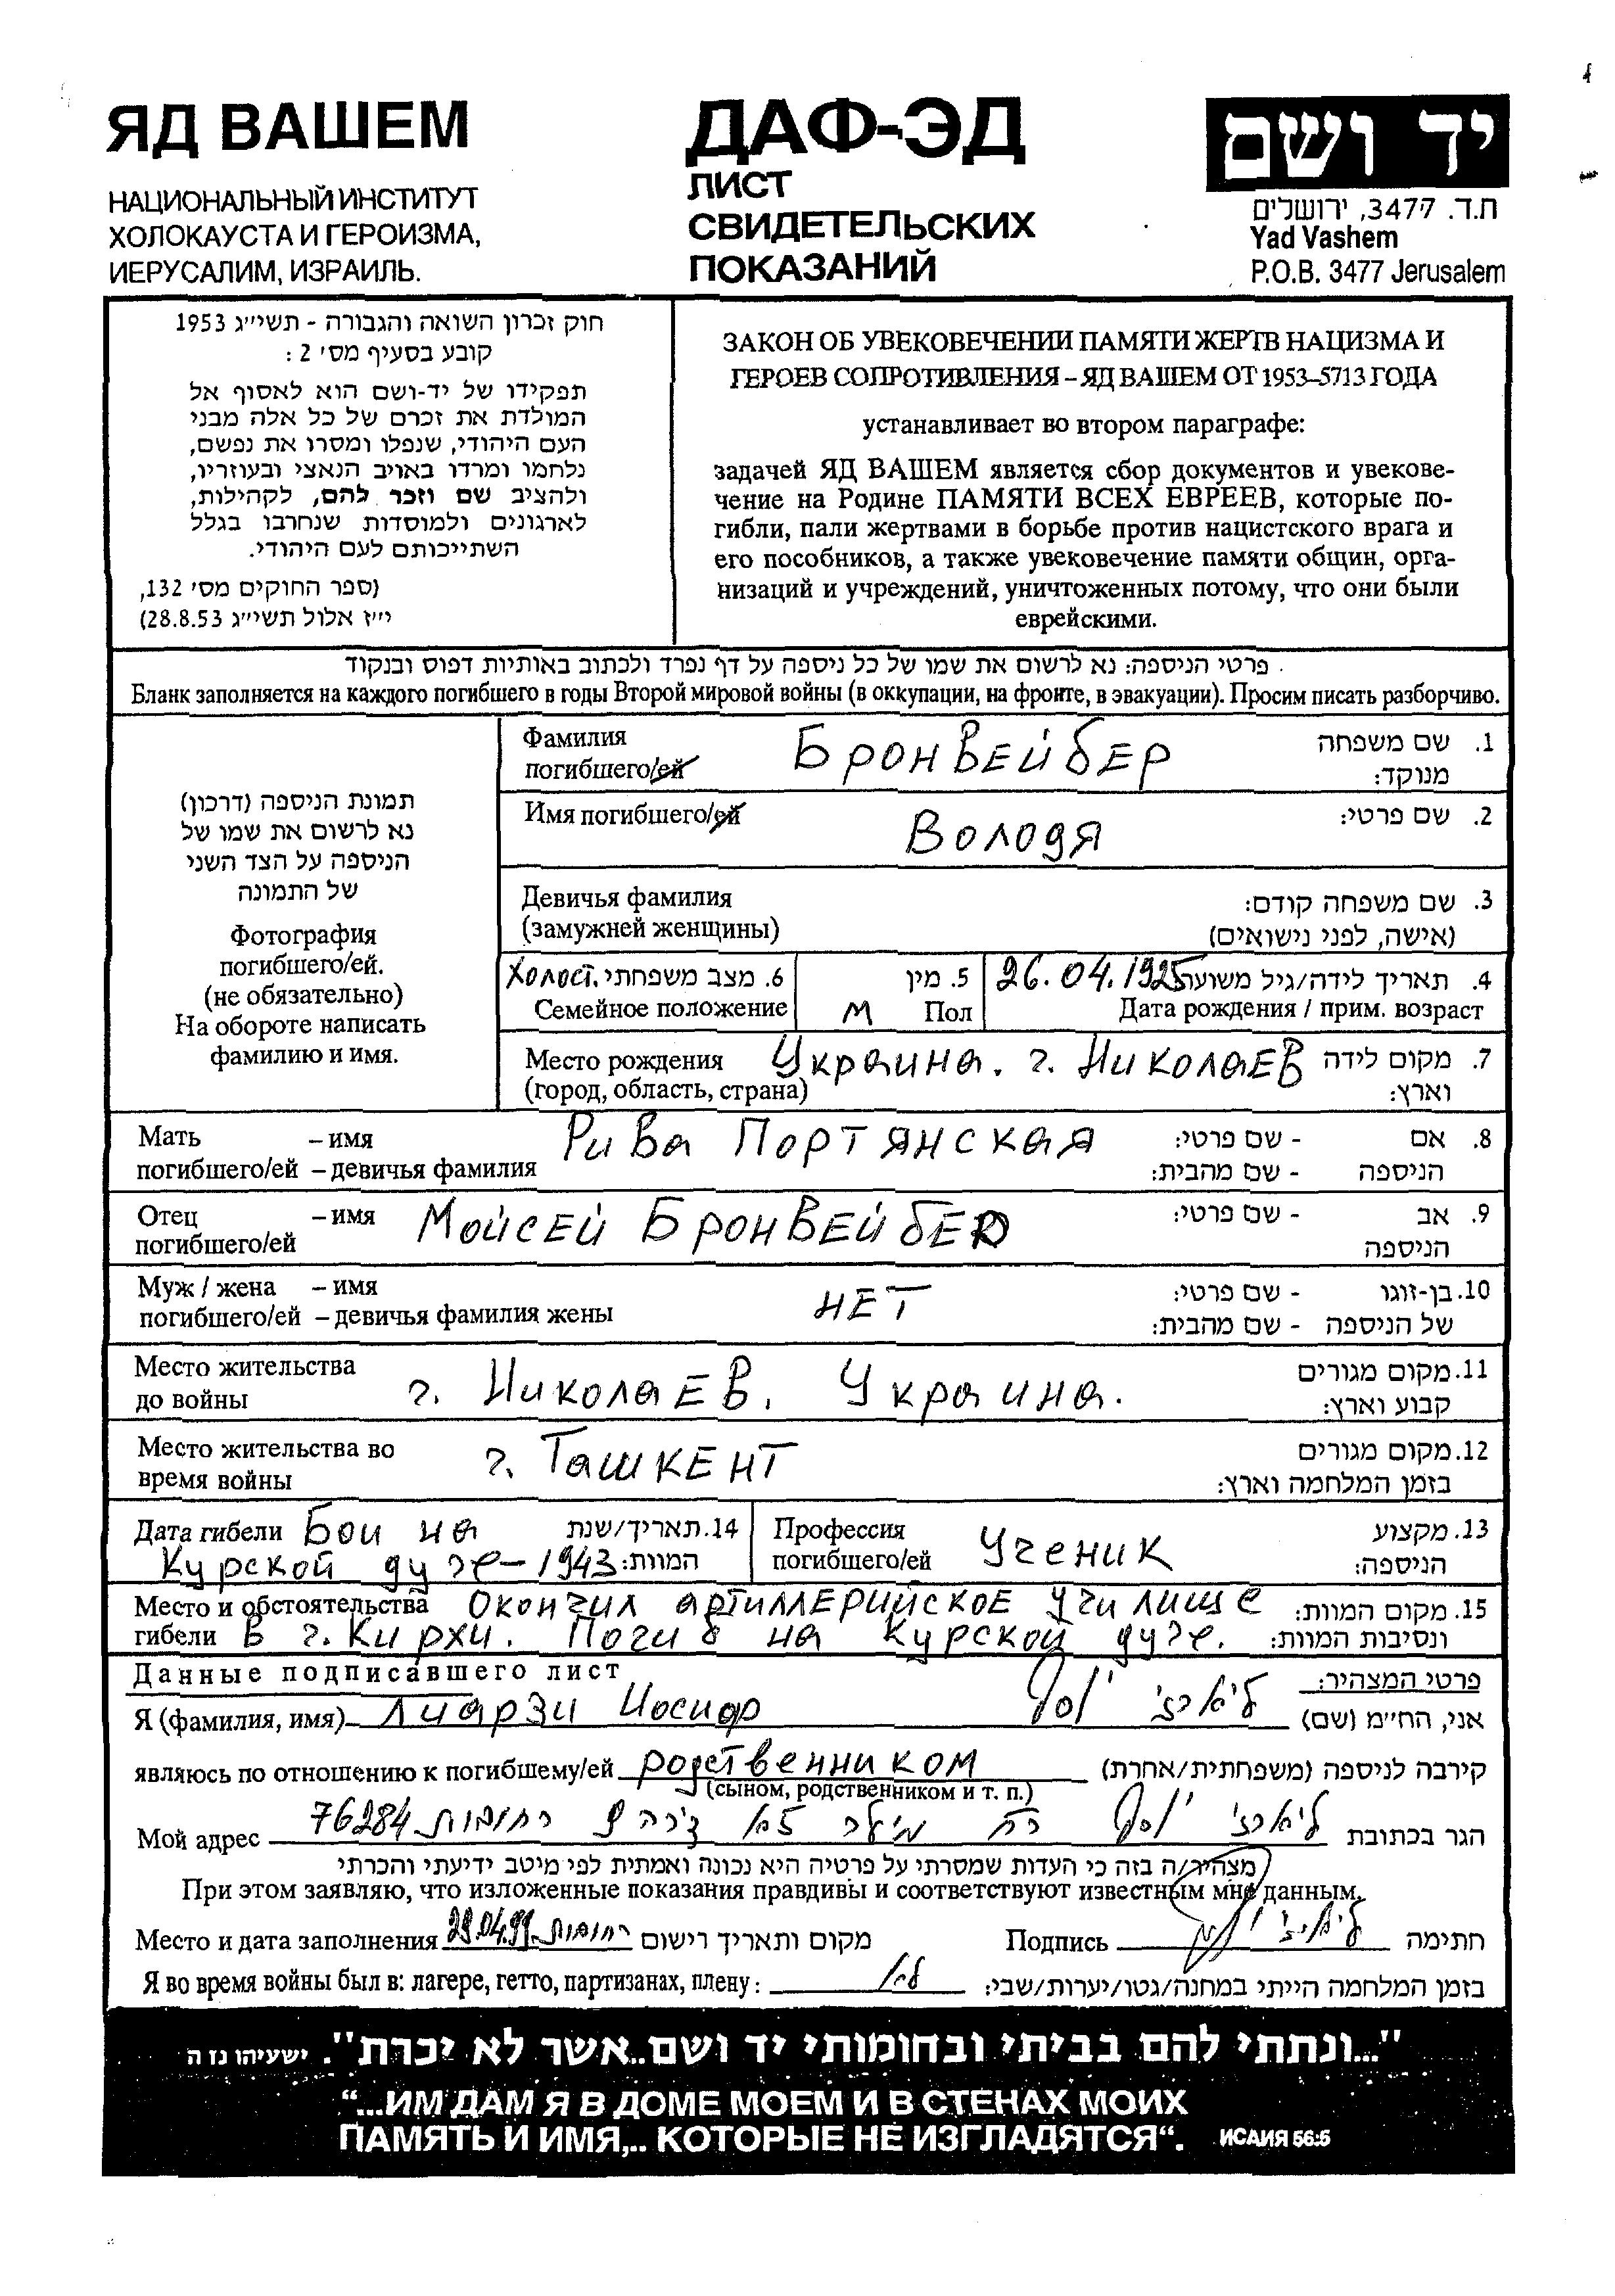 ЯД ВАШЕМ
НАЦИОНАЛЬНЫЙ ИНСТИТУТ
ХОЛОКАУСТА И ГЕРОИЗМА,
ИЕРУСАЛИМ, ИЗРАИЛЬ.
ДАФ-ЭД
ЛИСТ
СВИДЕТЕЛЬСКИХ
ПОКАЗАНИЙ
יד ושם
ת.ד. 3477, ירושלים
Yad Vashem
P.O.B. 3477 Jerusalem
חוק זכרון השואה והגבורה - תשי״ג 1953
קובע בסעיף מס׳ 2 :
תפקידו של יד-ושם הוא לאסוף אל
המולדת את זכרם של כל אלה מבני
העם היהודי, שנפלו ומסרו את נפשם,
נלחמו ומרדו באויב הנאצי ובעוזריו,
ולהציב שם וזכר להם, לקהילות,
לארגונים ולמוסדות שנחרבו בגלל
השתייכותם לעם היהודי.
(ספר החוקים מס׳ 132,
י״ז אלול תשי״ג 28.8.53)
ЗАКОН ОБ УВЕКОВЕЧЕНИИ ПАМЯТИ ЖЕРТВ НАЦИЗМА И
ГЕРОЕВ СОПРОТИВЛЕНИЯ – ЯД ВАШЕМ ОТ 1953–5713 ГОДА
устанавливает во втором параграфе:
задачей ЯД ВАШЕМ является сбор документов и увекове-
чение на Родине ПАМЯТИ ВСЕХ ЕВРЕЕВ, которые по-
гибли, пали жертвами в борьбе против нацистского врага и
его пособников, а также увековечение памяти общин, орга-
низаций и учреждений, уничтоженных потому, что они были
еврейскими.
פרטי הניספה: נא לרשום את שמו של כל ניספה על דף נפרד ולכתוב באותיות דפוס ובנקוד
Бланк заполняется на каждого погибшего в годы Второй мировой войны (в оккупации, на фронте, в эвакуации). Просим писать разборчиво.
תמונת הניספה (דרכון)
נא לרשום את שמו של
הניספה על הצד השני
של התמונה
Фотография
погибшего/ей.
(не обязательно)
На обороте написать
фамилию и имя.
Фамилия БРОНВЕЙБЕР 1. שם משפחה
погибшего/ей מנוקד:
Имя погибшего/ей Володя 2. שם פרטי:
Девичья фамилия 3. שם משפחה קודם:
(замужней женщины) (אישה, לפני נישואים)
Холост. 6. מצב משפחתי 5. מין 26.04.1925 4. תאריך לידה/גיל משוער
Семейное положение М Пол Дата рождения / прим. возраст
Место рождения Украина. г. Николаев 7. מקום לידה
(город, область, страна) וארץ:
Мать – имя Рива Портянская - שם פרטי: 8. אם
погибшего/ей – девичья фамилия - שם מהבית: הניספה
Отец – имя Мойсей Бронвейбер - שם פרטי: 9. אב
погибшего/ей הניספה
Муж / жена – имя НЕТ - שם פרטי: 10. בן-זוגו
погибшего/ей – девичья фамилия жены - שם מהבית: של הניספה
Место жительства г. Николаев, Украина. 11. מקום מגורים
до войны קבוע וארץ:
Место жительства во г. Ташкент 12. מקום מגורים
время войны בזמן המלחמה וארץ:
Дата гибели Бои на 14. תאריך/שנת Профессия Ученик 13. מקצוע
Курской дуге – 1943 המוות: погибшего/ей הניספה:
Место и обстоятельства Окончил артиллерийское училище 15. מקום המוות:
гибели в г. Кирхи. Погиб на Курской дуге. ונסיבות המוות:
Данные подписавшего лист פרטי המצהיר:
Я (фамилия, имя) Лиарзи Иосиф ליארזי יוסף אני, הח״מ (שם)
являюсь по отношению к погибшему/ей родственником קירבה לניספה (משפחתית/אחרת)
(сыном, родственником и т. п.)
Мой адрес ליארזי יוסף רח׳ מילר דירה 9 רחובות 76284 הגר בכתובת
מצהיר/ה בזה כי העדות שמסרתי על פרטיה היא נכונה ואמתית לפי מיטב ידיעתי והכרתי
При этом заявляю, что изложенные показания правдивы и соответствуют известным мне данным.
Место и дата заполнения 29.04.99 רחובות מקום ותאריך רישום Подпись ליארזי יוסף חתימה
Я во время войны был в: лагере, гетто, партизанах, плену: לא בזמן המלחמה הייתי במחנה/גטו/יערות/שבי:
"...ונתתי להם בביתי ובחומותי יד ושם..אשר לא יכרת". ישעיהו נז ה
“...ИМ ДАМ Я В ДОМЕ МОЕМ И В СТЕНАХ МОИХ
ПАМЯТЬ И ИМЯ,.. КОТОРЫЕ НЕ ИЗГЛАДЯТСЯ“. ИСАИЯ 56:5